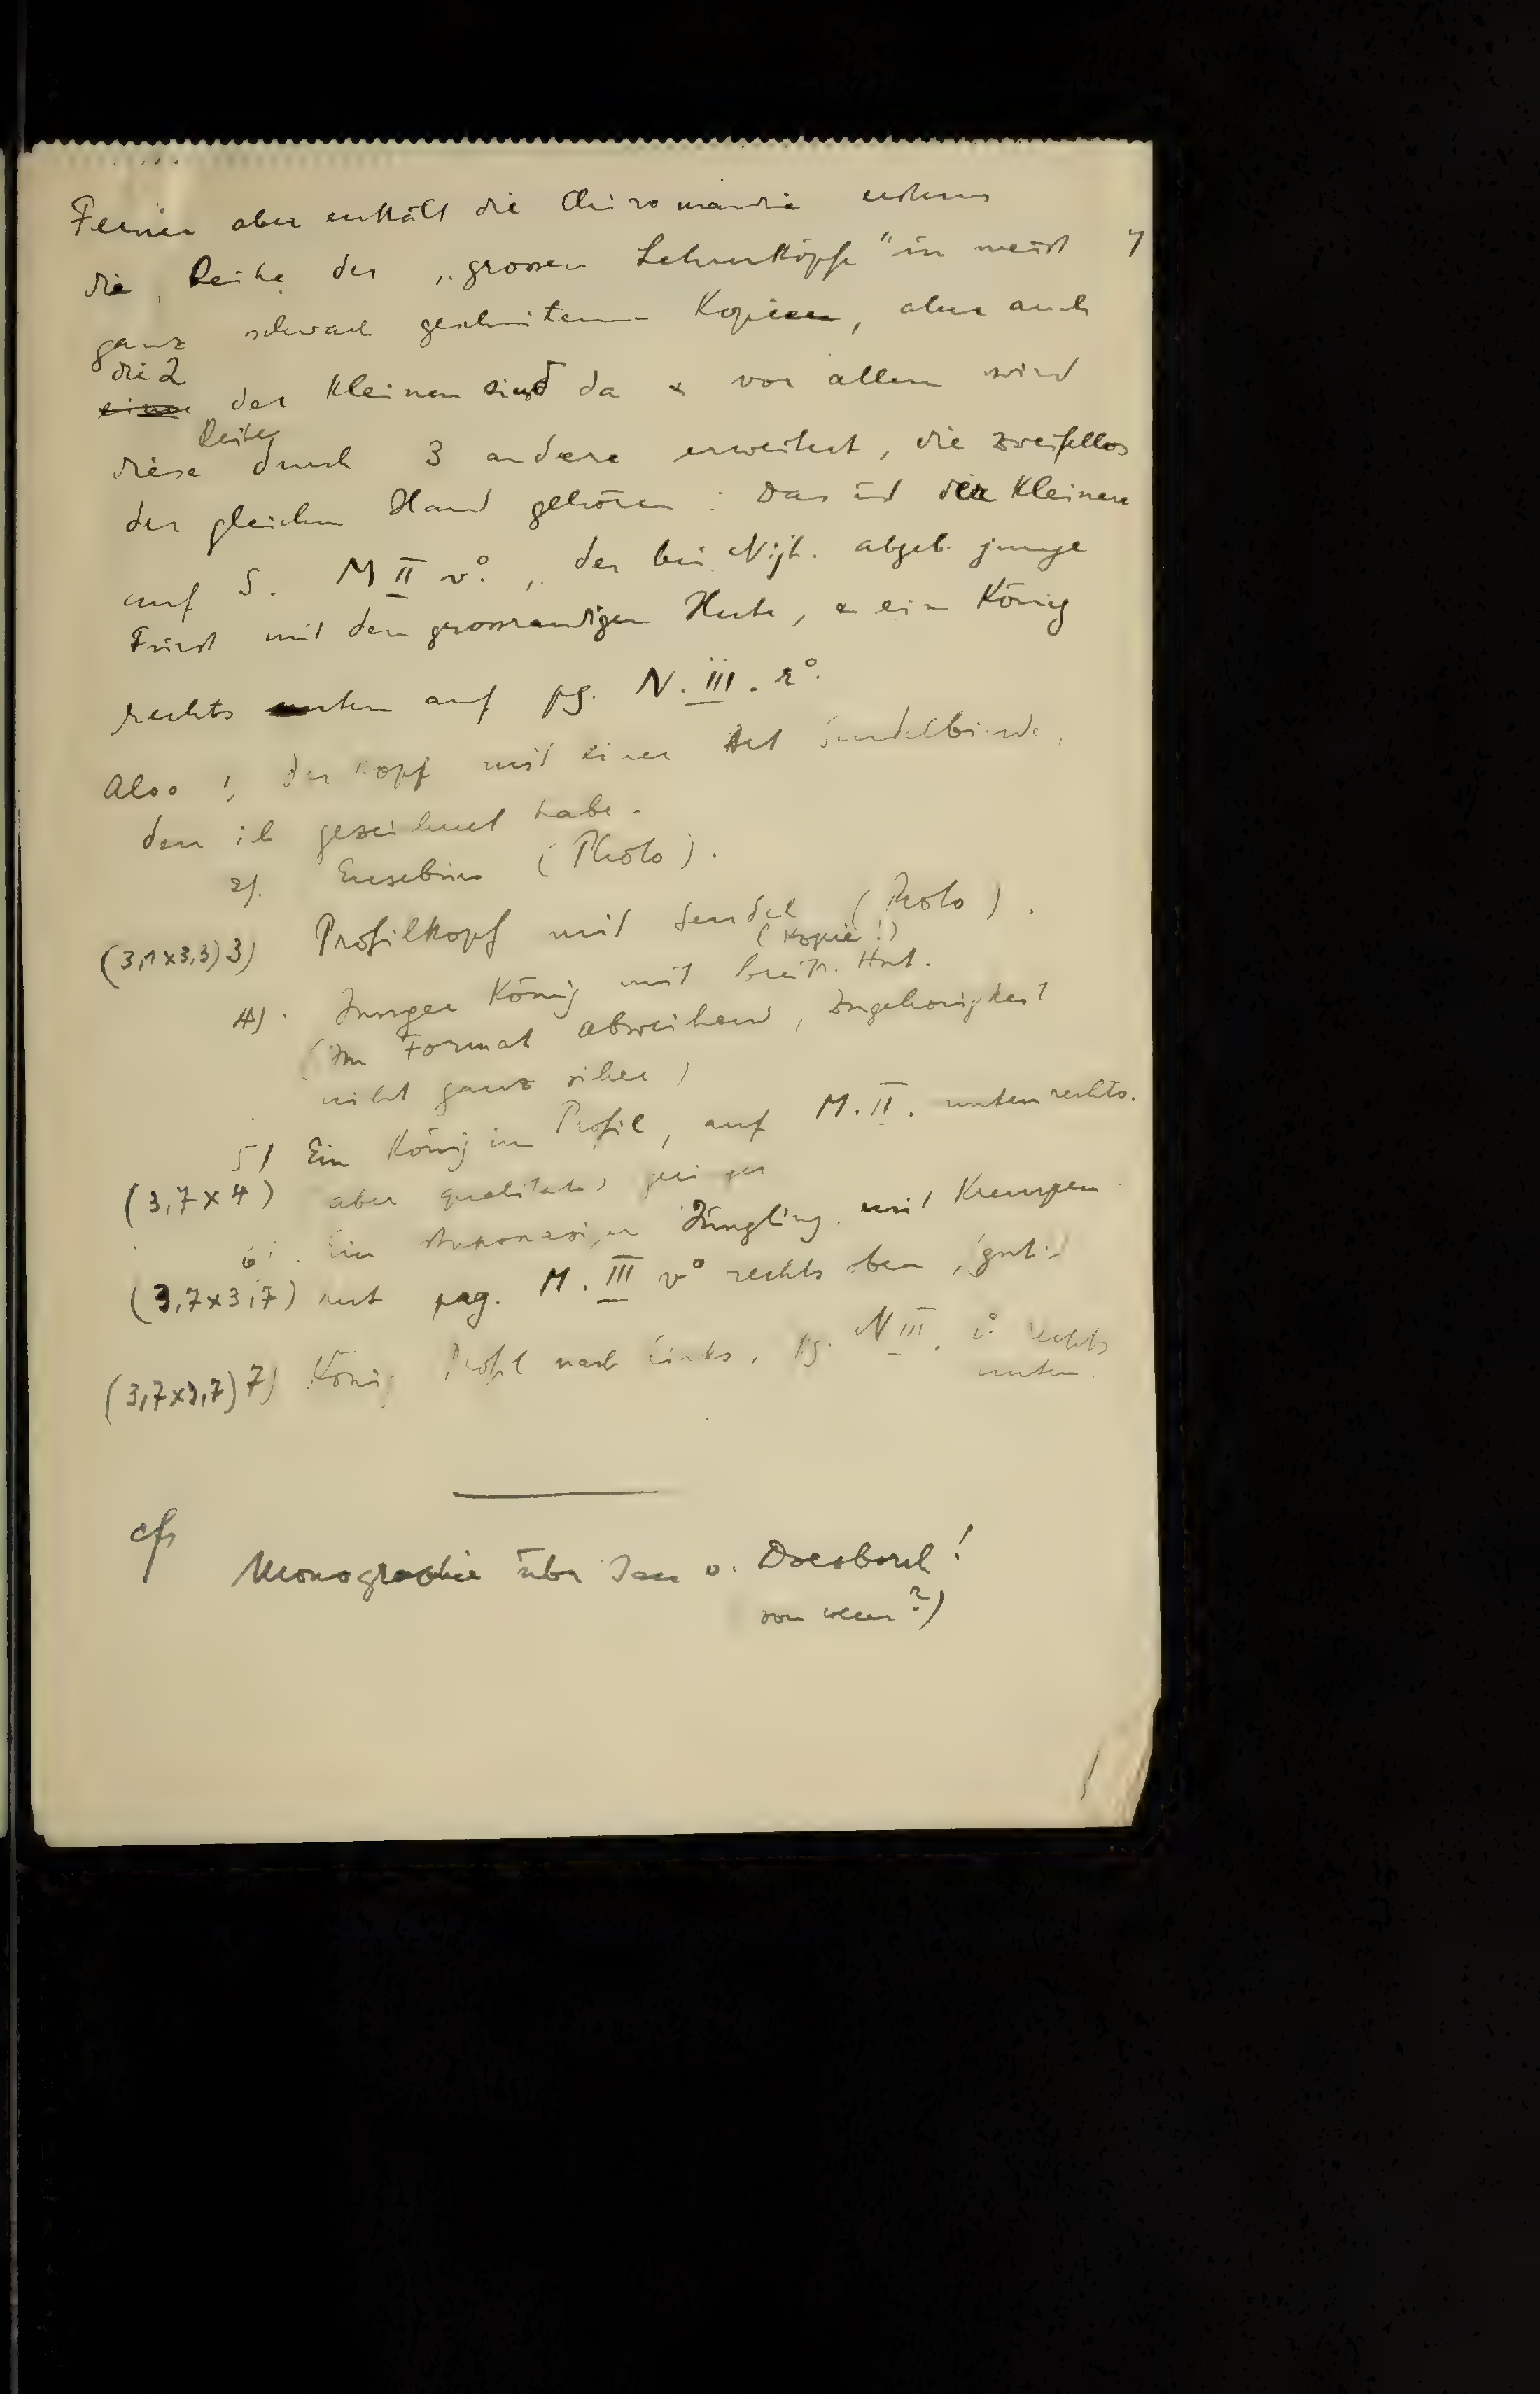 Ferner aber enthält die Chiromantie erstens
die Reihe der „grossen Lehrerköpfe" in meist
ganz schwach geschnittenen Kopien, aber auch
die 2
der Kleinen sind da & vor allem wird
Reihe
diese durch 3 andere erweitert, die zweifellos
der gleichen Hand gehören: Das ist der Kleinere
auf S. M II v°., der bei Nijh. abgeb. junge
Fürst mit dem grossrandigen Hute, & ein König
rechts unten auf pg. N. III. r°.
Also 1, der Kopf mit einer Art Sendelbinde,
den ich gezeichnet habe.
2). Eusebius (Photo).
(3,1x3,3) 3) Profilkopf mit Sendel (Photo).
(Kopie!)
4). Junger König mit breitr. Hut.
(Im Format abweichend, Zugehörigkeit
nicht ganz sicher)
5) Ein König im Profil, auf M. II. unten rechts.
(3,7 x 4) aber qualitativ geringer
6). Ein Jüngling mit Krempen-
(3,7x3,7) hut pag. M. III v° rechts oben, gut.
(3,7x3,7) 7) König Profil nach links, pg. N III. v° rechts
unten.
cfr
Monographie über Jan v. Doesborch!
von wem?)